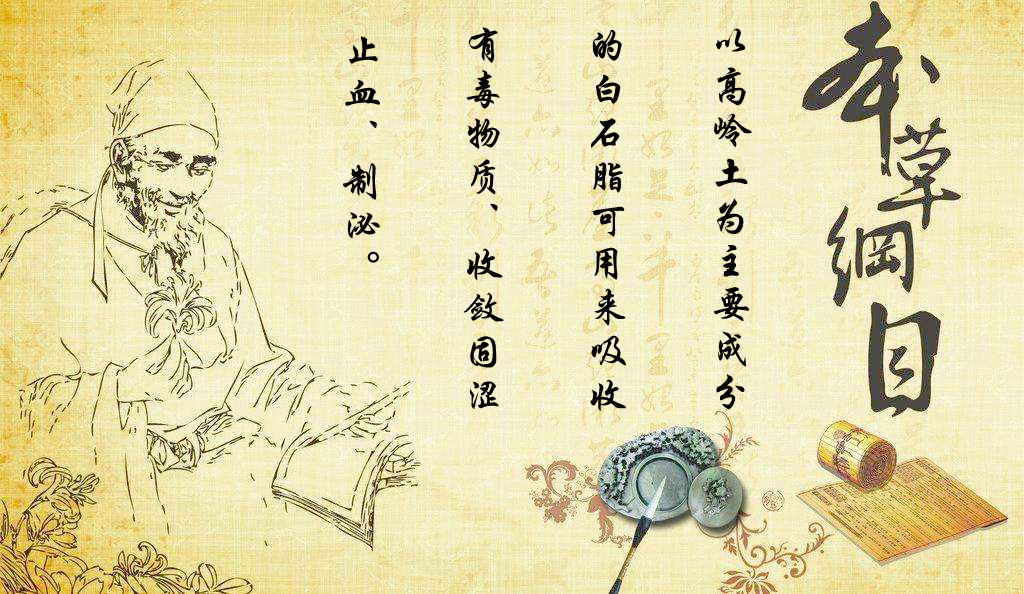 本草綱目
以高岭土为主要成分
的白石脂可用来吸收
有毒物质、收敛固涩
止血、制泌。